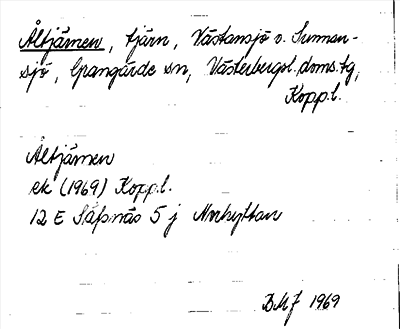 Åltjärnen, tjärn, Västansjö o. Sunnan-
sjö, Grangärde sn, Västerbergsl. doms.tg,
Kopp.l.
Åltjärnen
ek (1969) Kopp.l.
12 E Säfsnäs 5 j Norhyttan
BMJ 1969